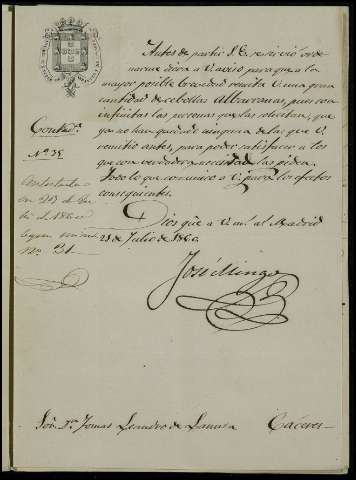 Antes de partir S. E. se sirvió orde-
narme diera a V. aviso para que a la
mayor posible brevedad remita V. una gran
cantidad de cebollas Albarranas, pues son
infinitas las personas que las solicitan, que
ya no han quedado ninguna de las que V.
remitio antes, para poder satisfacer a los
que con verdadera necesidad las piden.
Todo lo que comunico a V. para los efectos
consiguientes.
Dios gúe a V. m. a. Madrid
21 de Julio de 1860.
José Mingo
Contad.ª
Nº 35
Contestada
en 28 de
de 1860
nº 31
Sór. Dn. Tomas Leandro de Cáceres